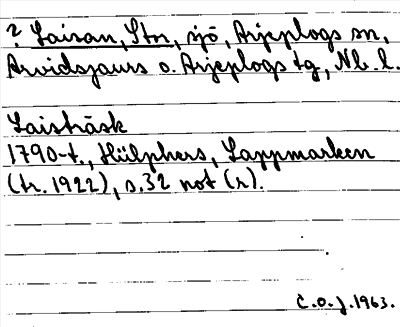 ? Laisan, Stor, sjö, Arjeplogs sn,
Arvidsjaurs o. Arjeplogs tg, Nb. l.
Laisträsk
1790-t., Hülphers, Lappmarken
(tr. 1922), s. 32 not (r).
C.O.J. 1963.